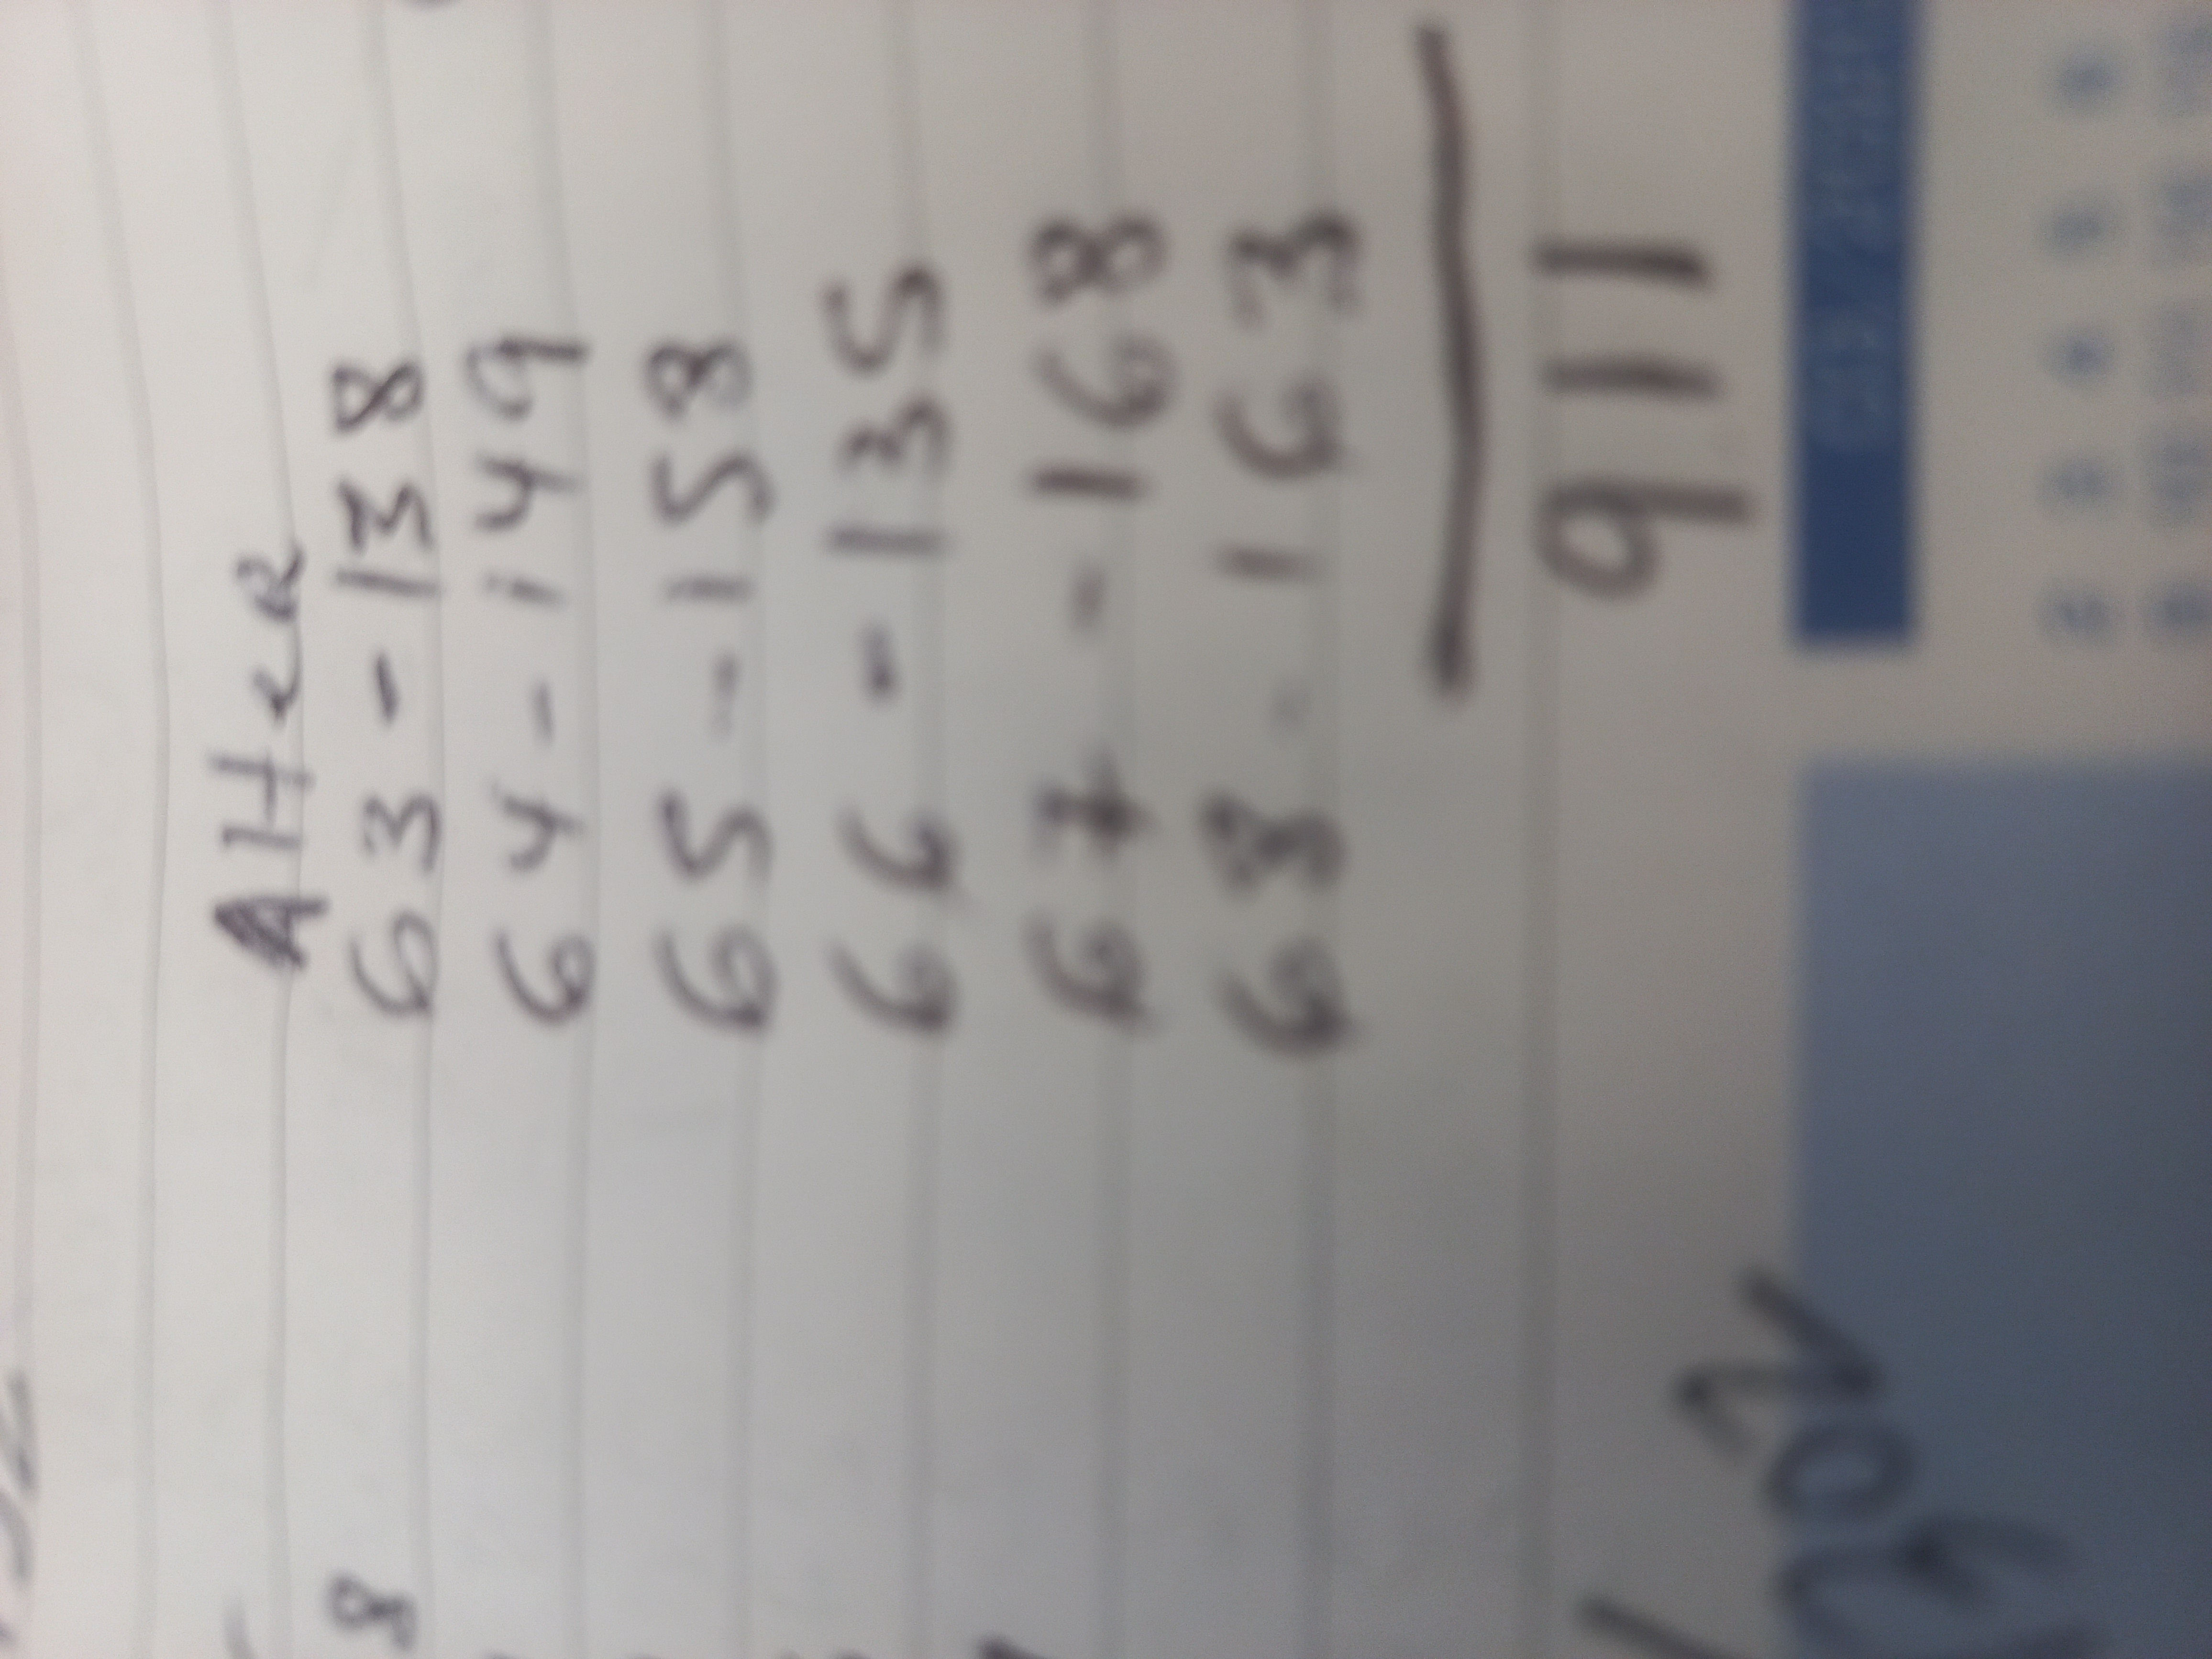 After
63-138
64-149
65-158
66-135
67-168
68-163
911
8